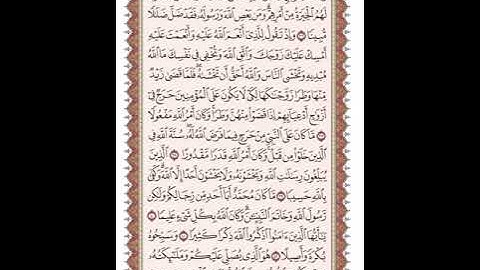 لَهُمُ ٱلْخِيَرَةُ مِنْ أَمْرِهِمْ وَمَن يَعْصِ ٱللَّهَ وَرَسُولَهُۥ فَقَدْ ضَلَّ ضَلَٰلًا
مُّبِينًا ۝ وَإِذْ تَقُولُ لِلَّذِىٓ أَنْعَمَ ٱللَّهُ عَلَيْهِ وَأَنْعَمْتَ عَلَيْهِ
أَمْسِكْ عَلَيْكَ زَوْجَكَ وَٱتَّقِ ٱللَّهَ وَتُخْفِى فِى نَفْسِكَ مَا ٱللَّهُ
مُبْدِيهِ وَتَخْشَى ٱلنَّاسَ وَٱللَّهُ أَحَقُّ أَن تَخْشَىٰهُ فَلَمَّا قَضَىٰ زَيْدٌ
مِّنْهَا وَطَرًا زَوَّجْنَٰكَهَا لِكَىْ لَا يَكُونَ عَلَى ٱلْمُؤْمِنِينَ حَرَجٌ فِىٓ
أَزْوَٰجِ أَدْعِيَآئِهِمْ إِذَا قَضَوْا۟ مِنْهُنَّ وَطَرًا وَكَانَ أَمْرُ ٱللَّهِ مَفْعُولًا
۝ مَّا كَانَ عَلَى ٱلنَّبِىِّ مِنْ حَرَجٍ فِيمَا فَرَضَ ٱللَّهُ لَهُۥ سُنَّةَ ٱللَّهِ فِى
ٱلَّذِينَ خَلَوْا۟ مِن قَبْلُ وَكَانَ أَمْرُ ٱللَّهِ قَدَرًا مَّقْدُورًا ۝ ٱلَّذِينَ
يُبَلِّغُونَ رِسَٰلَٰتِ ٱللَّهِ وَيَخْشَوْنَهُۥ وَلَا يَخْشَوْنَ أَحَدًا إِلَّا ٱللَّهَ وَكَفَىٰ
بِٱللَّهِ حَسِيبًا ۝ مَّا كَانَ مُحَمَّدٌ أَبَآ أَحَدٍ مِّن رِّجَالِكُمْ وَلَٰكِن
رَّسُولَ ٱللَّهِ وَخَاتَمَ ٱلنَّبِيِّـۧنَ وَكَانَ ٱللَّهُ بِكُلِّ شَىْءٍ عَلِيمًا ۝
يَٰٓأَيُّهَا ٱلَّذِينَ ءَامَنُوا۟ ٱذْكُرُوا۟ ٱللَّهَ ذِكْرًا كَثِيرًا ۝ وَسَبِّحُوهُ
بُكْرَةً وَأَصِيلًا ۝ هُوَ ٱلَّذِى يُصَلِّى عَلَيْكُمْ وَمَلَٰٓئِكَتُهُۥ